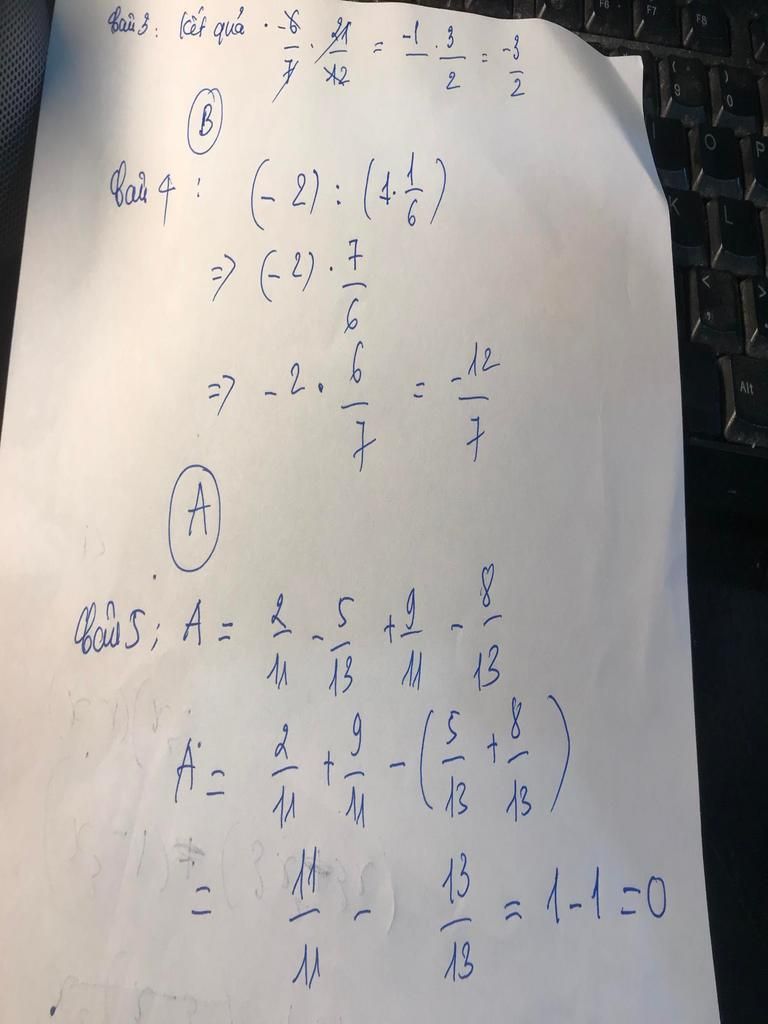 Bài 3: Kết quả . -6/7 . 21/12 = -1/ . 3/2 = -3/2
B
Bài 4: (-2) : (1.1/6)
=> (-2) . 7/6
=> -2 . 6/7 = -12/7
A
Bài 5; A = 2/11 - 5/13 + 9/11 - 8/13
A = 2/11 + 9/11 - (5/13 + 8/13)
= 11/11 - 13/13 = 1 - 1 = 0